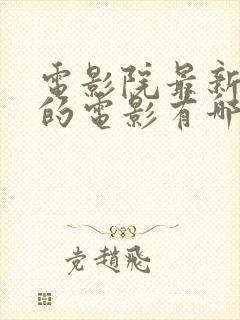 電影院最新
的電影有哪
党趙飛